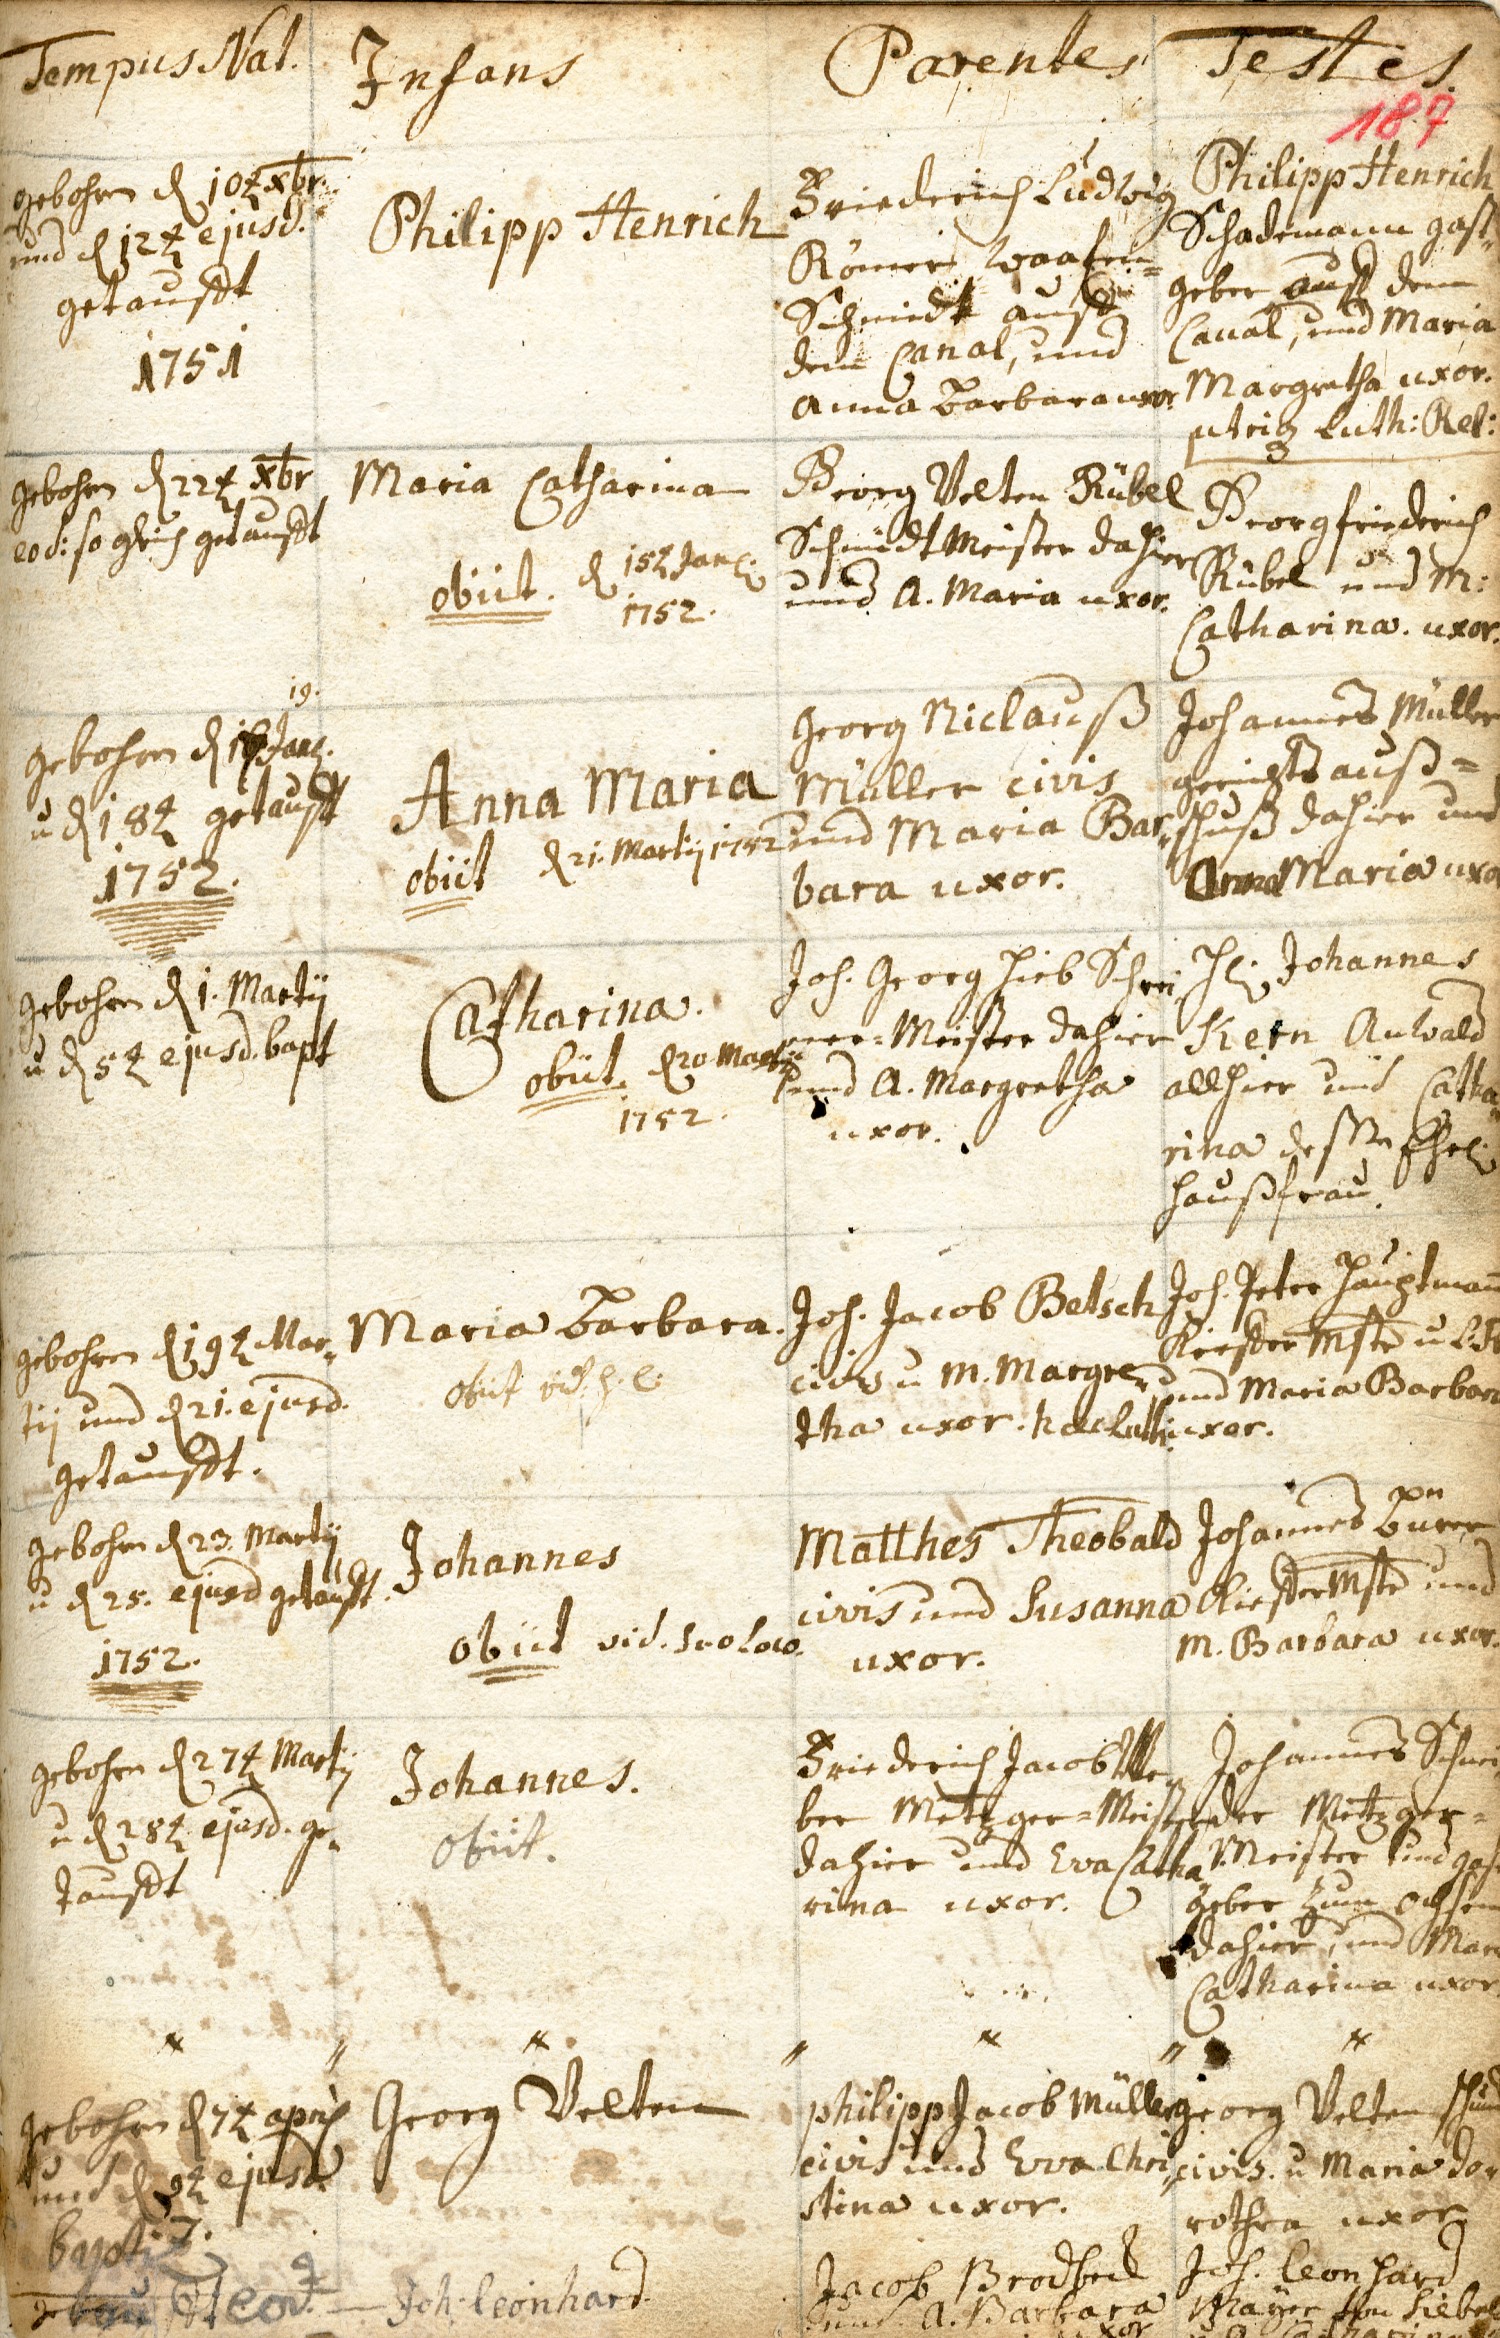 Tempus Nat.
Infans
Parentes
Testes.
187
gebohren d 10t xbr.
und d 12t ejusd.
getaufft
1751
Philipp Henrich
Friederich Ludwig
Römer Waafen=
Schmidt auff
dem Canal, und
Anna Barbara uxor.
Philipp Henrich
Schademann gast=
geber auff dem
Canal, und Maria
Margretha uxor.
Luth: Rel:
gebohren d 22t xbr
eod: so gleich getaufft
Maria Catharina
obiit. d 15t Jan:
1752.
Georg Velten Rübel
Schmidt Meister dahier
und A. Maria uxor.
Georg friederich
Rübel und M:
Catharina. uxor.
19.
gebohren d Jan.
u d 18t getaufft
1752.
Anna Maria
obiit d 21. Martij 1752
Georg Niclauß
Müller civis
und Maria Bar=
bara uxor.
Johannes Müller
gerichts auß=
schuß dahier und
Anna Maria uxo
gebohren d 1. Martij
u d 5t ejusd. bapt
Catharina.
obiit. d 20 Martij
1752.
Joh. Georg Hieb Schrei
ner=Meister dahier
und A. Margretha
uxor.
H: Johannes
Kern Anwald
allhier und Catha=
rina dessen Ehel:
haußfrau.
gebohren d 19t Mar=
tij und d 21. ejusd.
getaufft.
Maria Barbara.
obiit vid:
Joh. Jacob Betsch
civis u M. Margre=
tha uxor. haec Luth:
Joh. Peter Hauptmann
Kieffermstr
und Maria Barbara
uxor.
gebohren d 23. Martij
u d 25. ejusd getaufft.
1752.
Johannes
obiit vid. suo Loco.
Matthes Theobald
civis und Susanna
uxor.
Johannes
Kieffermstr und
M. Barbara uxor.
gebohren d 27t Martij
u d 28t ejusd. ge=
taufft
Johannes.
obiit.
Friederich Jacob We=
ber Metzger=Meister
dahier und Eva Catha
rina uxor.
Johannes Schnei
der Metzger=
Meister und gast
geber zum ochsen
dahier, und Mar
Catharina uxor
gebohren d 7t april
und d 9t ejusd.
baptiz.
Georg Velten
philipp Jacob Müller
civis und Eva Chri=
stina uxor.
georg Velten
civis. u Maria Do=
rothea uxor
Joh. Leonhard
Jacob Brodbeck
und A. Barbara
uxor
Joh. Leonhard
Mayer